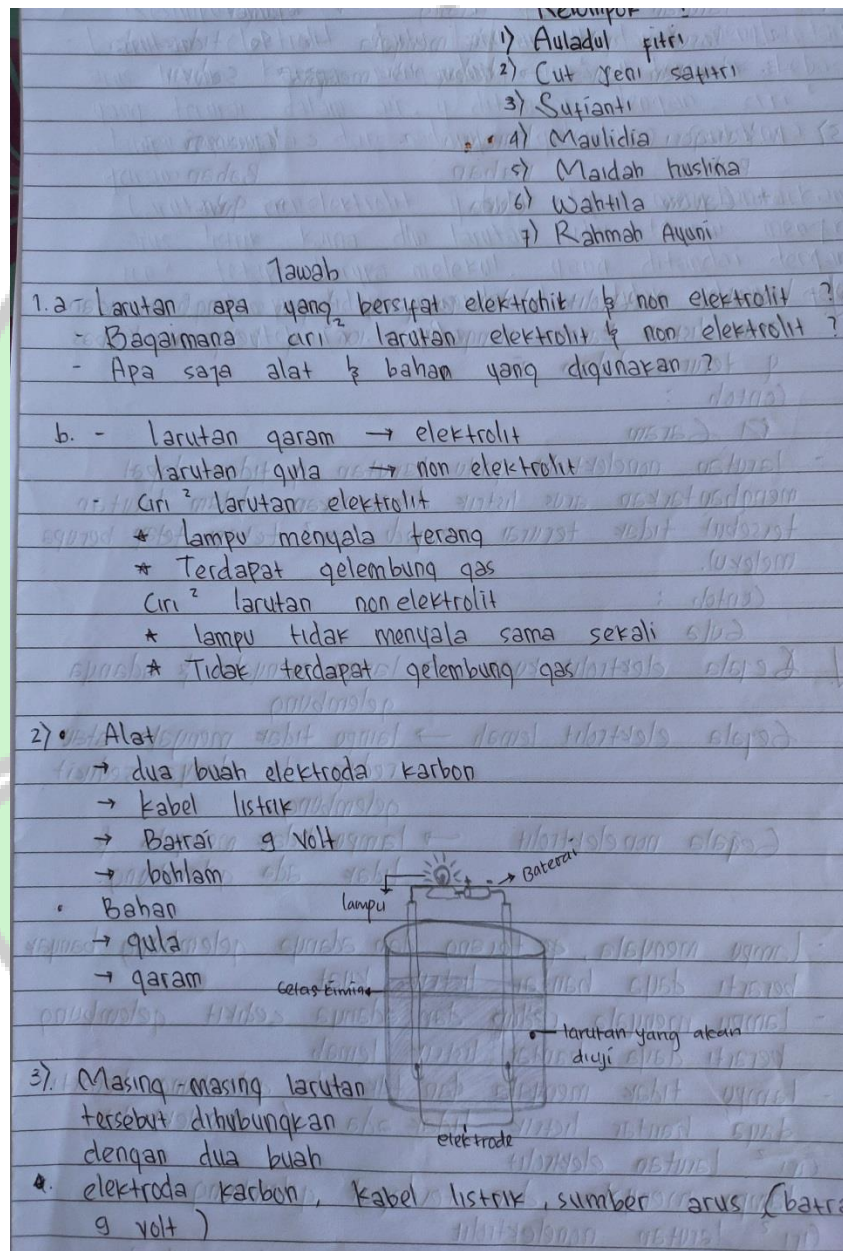 Kelompok :
1) Auladul fitri
2) Cut yeni safitri
3) Sufianti
4) Maulidia
5) Maidah huslina
6) Wahtila
7) Rahmah Ayuni
Jawab
1. a - Larutan apa yang bersifat elektrohit & non elektrolit ?
- Bagaimana ciri ² larutan elektrolit & non elektrolit ?
- Apa saja alat & bahan yang digunakan ?
b. - larutan garam → elektrolit
larutan gula → non elektrolit
- Ciri ² larutan elektrolit
* lampu menyala terang
* Terdapat gelembung gas
Ciri ² larutan non elektrolit
* lampu tidak menyala sama sekali
* Tidak terdapat gelembung gas
2) • Alat
→ dua buah elektroda karbon
→ kabel listrik
→ Batrai 9 Volt
→ bohlam
• Bahan
→ gula
→ garam
lampu
+ -
→ Baterai
Gelas kimia
larutan yang akan
diuji
elektrode
3). Masing-masing larutan
tersebut dihubungkan
dengan dua buah
elektroda karbon, kabel listrik, sumber arus (batra
9 volt )